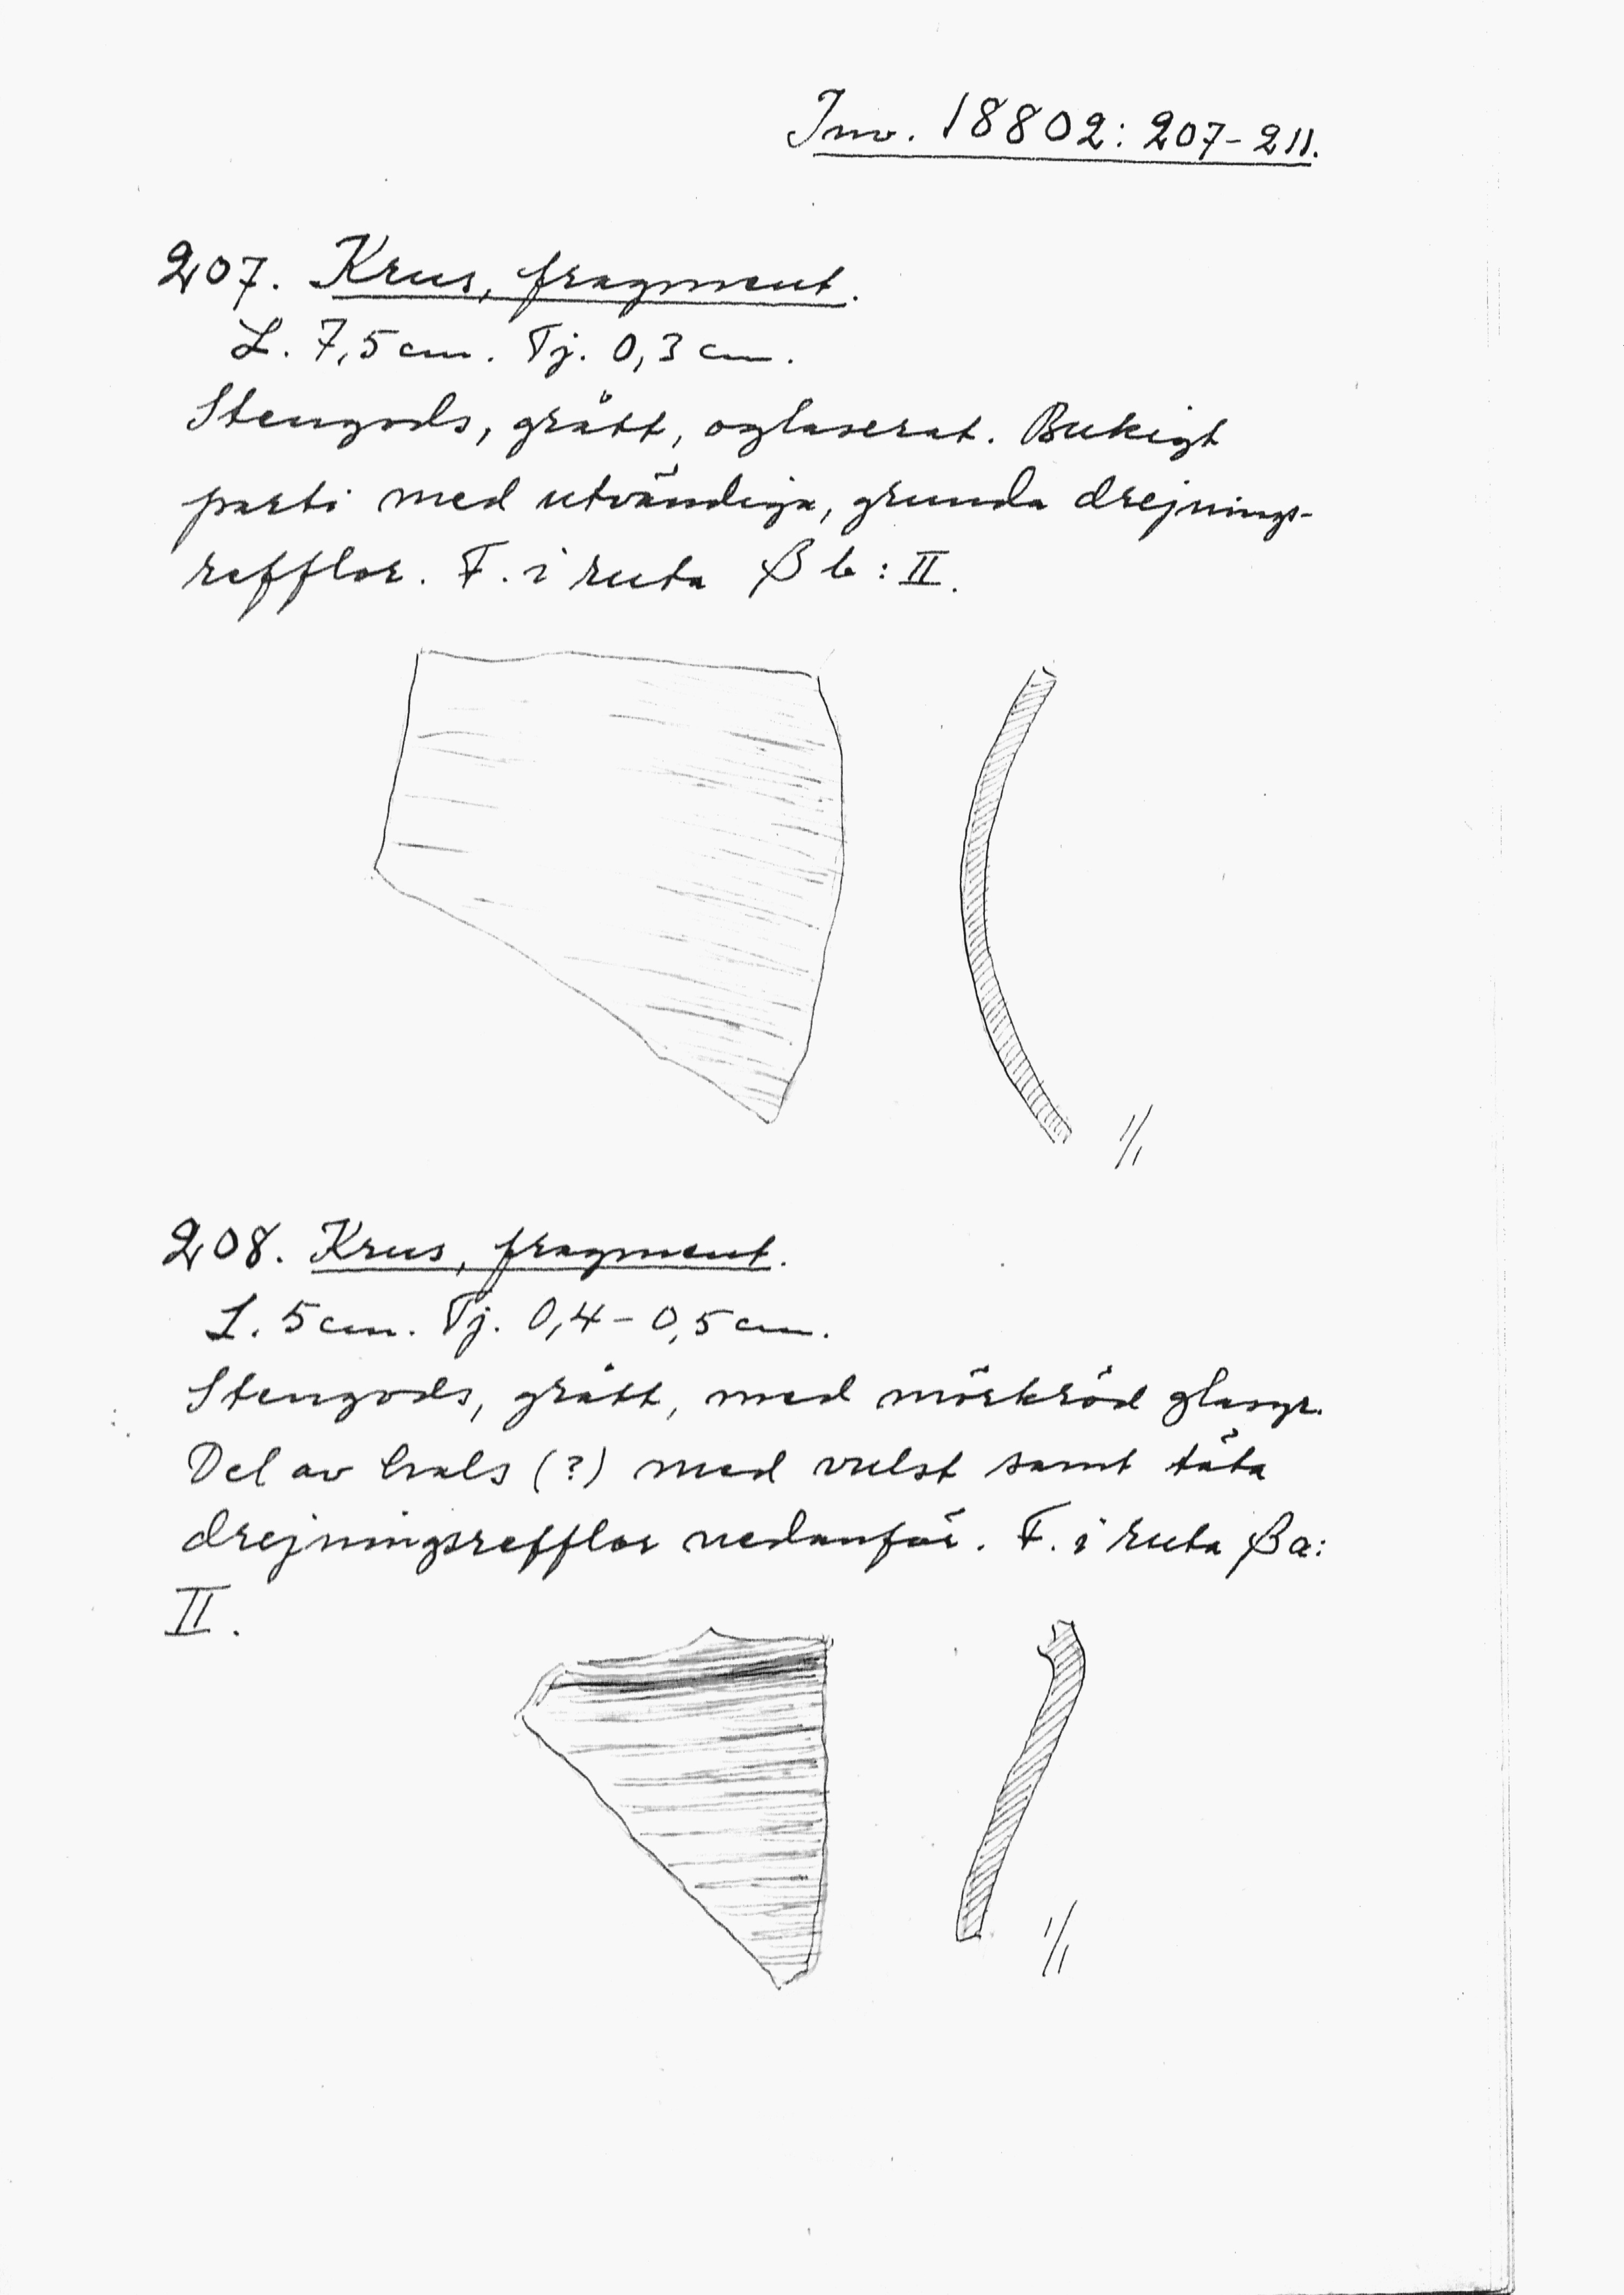 Inv. 18802: 207-211.
207. Krus, fragment.
L. 7,5 cm. Tj. 0,3 cm.
Stengods, grått, oglaserat. Bukigt
parti med utvändiga, grunda drejnings-
refflor. F. i ruta β b: II.
1/1
208. Krus, fragment.
L. 5 cm. Tj. 0,4-0,5 cm.
Stengods, grått, med mörkröd glasyr.
Del av hals (?) med vulst samt täta
drejningsrefflor nedanför. F. i ruta β a:
II.
1/1